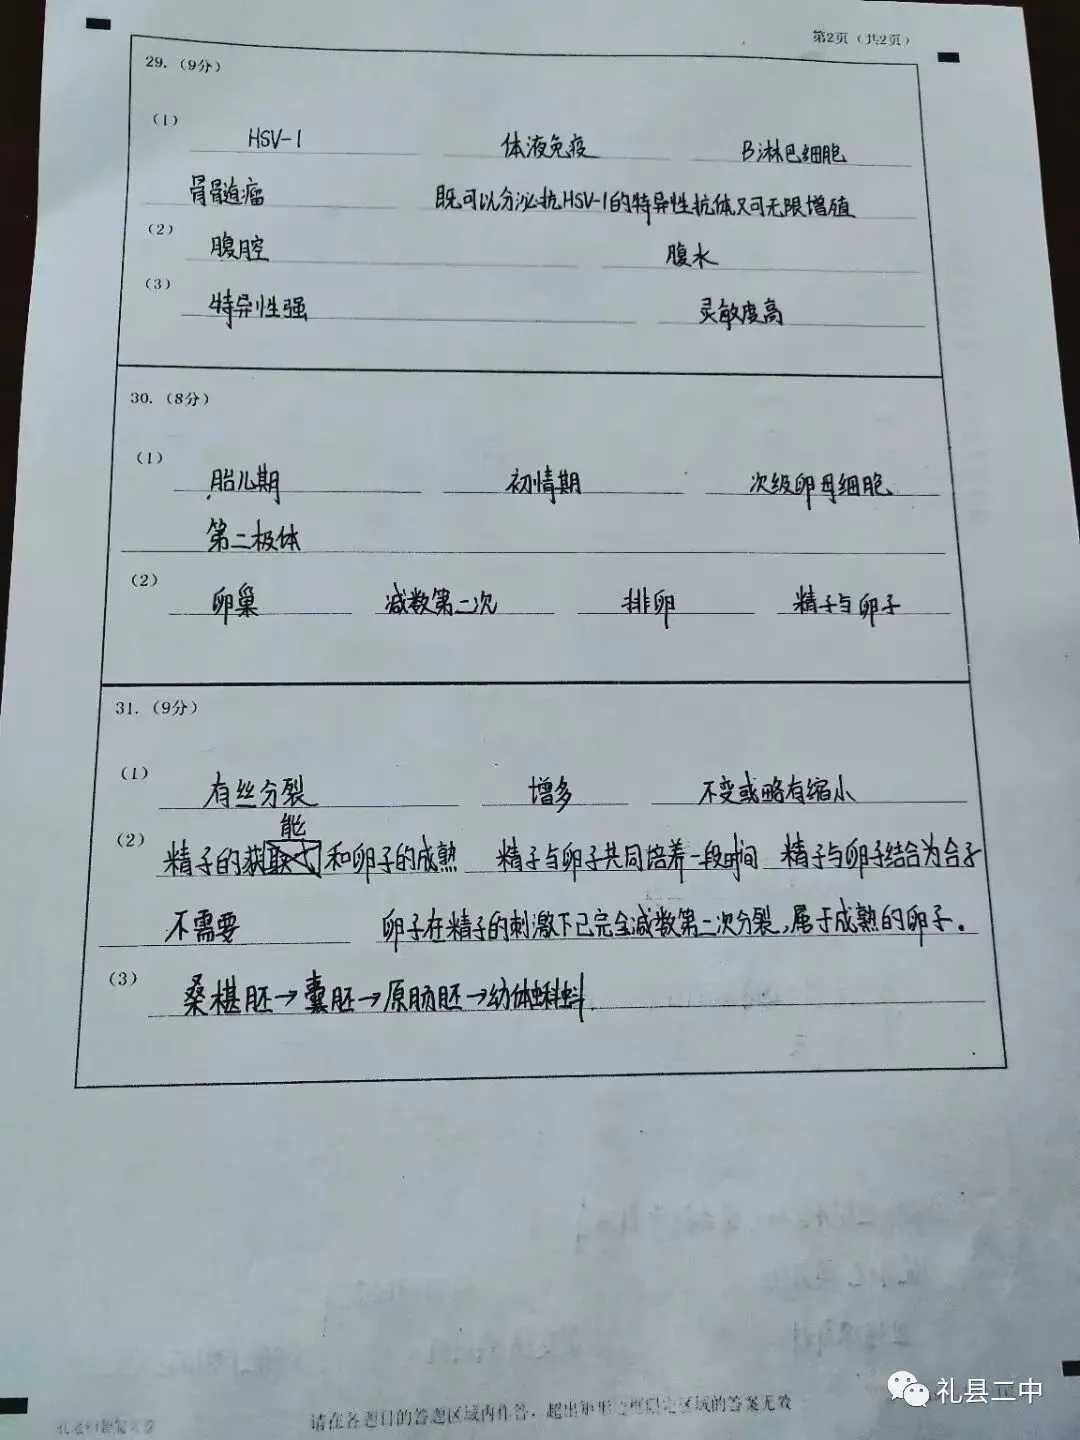 第2页（共2页）
29.（9分）
（1） HSV-1 体液免疫 B淋巴细胞
骨髓瘤 既可以分泌抗HSV-1的特异性抗体又可无限增殖
（2） 腹腔 腹水
（3） 特异性强 灵敏度高
30.（8分）
（1） 胎儿期 初情期 次级卵母细胞
第二极体
（2） 卵巢 减数第二次 排卵 精子与卵子
31.（9分）
（1） 有丝分裂 增多 不变或略有缩小
能
（2） 精子的获 和卵子的成熟 精子与卵子共同培养一段时间 精子与卵子结合为合子
不需要 卵子在精子的刺激下已完全减数第二次分裂,属于成熟的卵子.
（3） 桑椹胚→囊胚→原肠胚→幼体蝌蚪.
请在各题目的答题区域内作答，超出 区域的答案无效
礼县二中